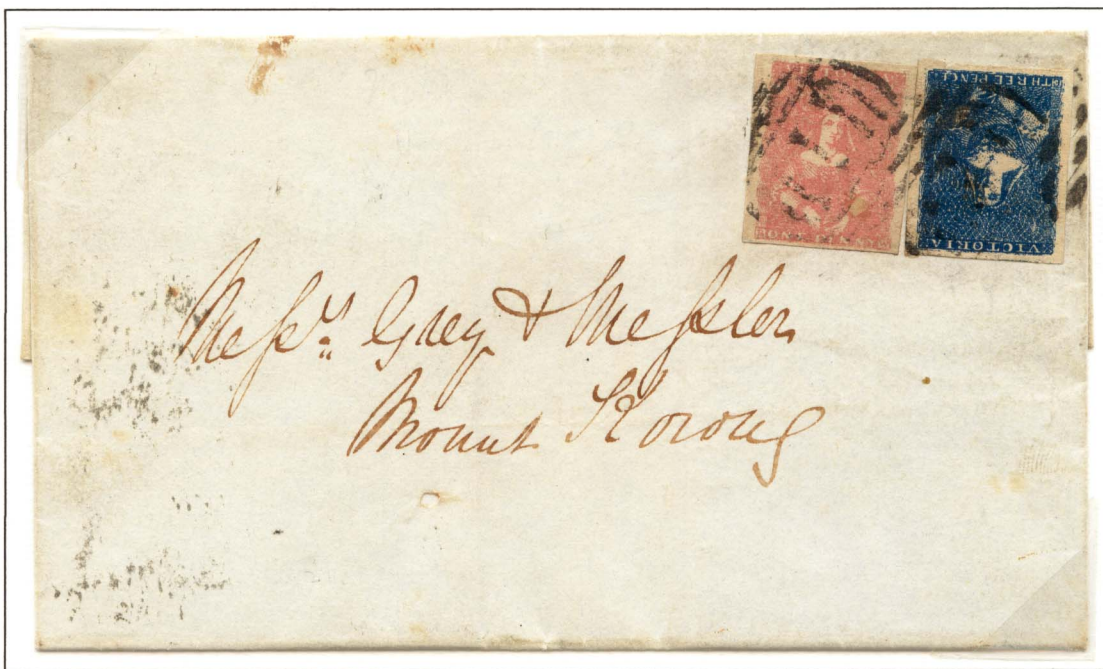 ONE PENNY
THREE PENCE
VICTORIA
Mess.rs Grey & Messler
Mount Korong